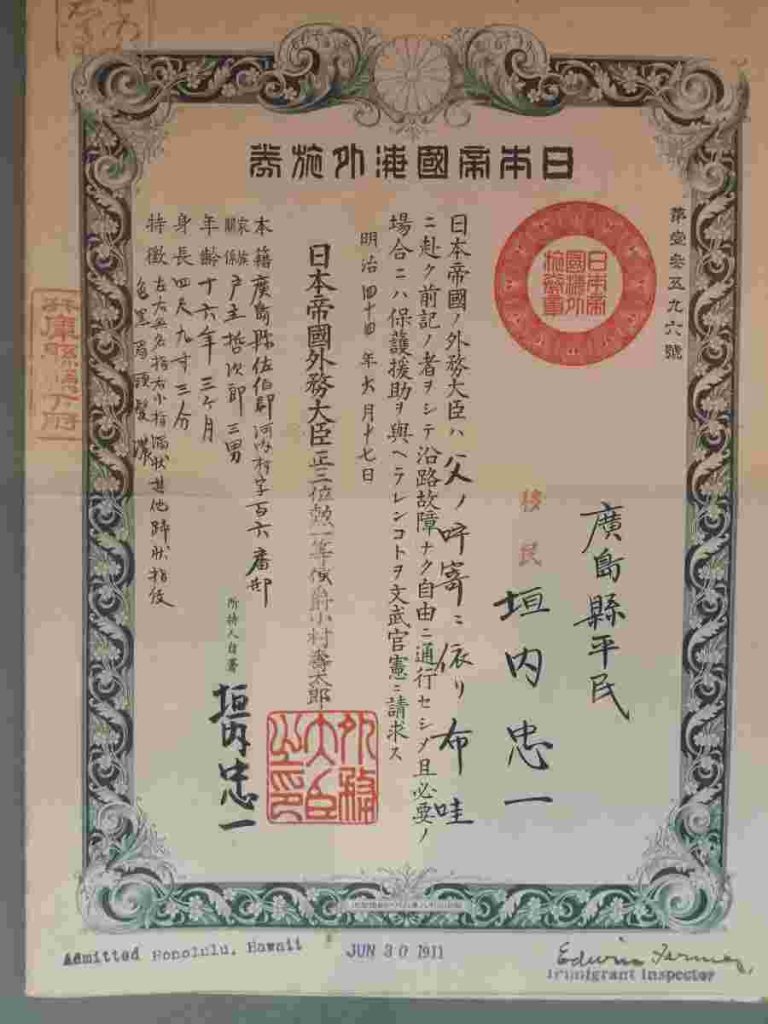 日本帝國海外旅券
第壹参五九六號
日本帝國海外旅券章
廣島縣平民
移民
垣内忠一
日本帝國ノ外務大臣ハ父ノ呼寄ニ依リ布哇
ニ赴ク前記ノ者ヲシテ沿路故障ナク自由ニ通行セシメ且必要ノ
場合ニハ保護援助ヲ與ヘラレンコトヲ文武官憲ニ請求ス
明治四十四年六月十七日
日本帝國外務大臣正三位勲一等侯爵小村壽太郎
外務大臣之印
本籍 廣島縣佐伯郡河内村字百六番邸
家族関係 戸主哲次郎三男
年齢 十六年三ヶ月
身長 四尺九寸三分
特徴 左右無名指右小指渦状其他蹄状指紋
色黒眉頭髪濃
所持人自署
垣内忠一
Admitted Honolulu, Hawaii
JUN 30 1911
Edwin Farmer
Immigrant Inspector